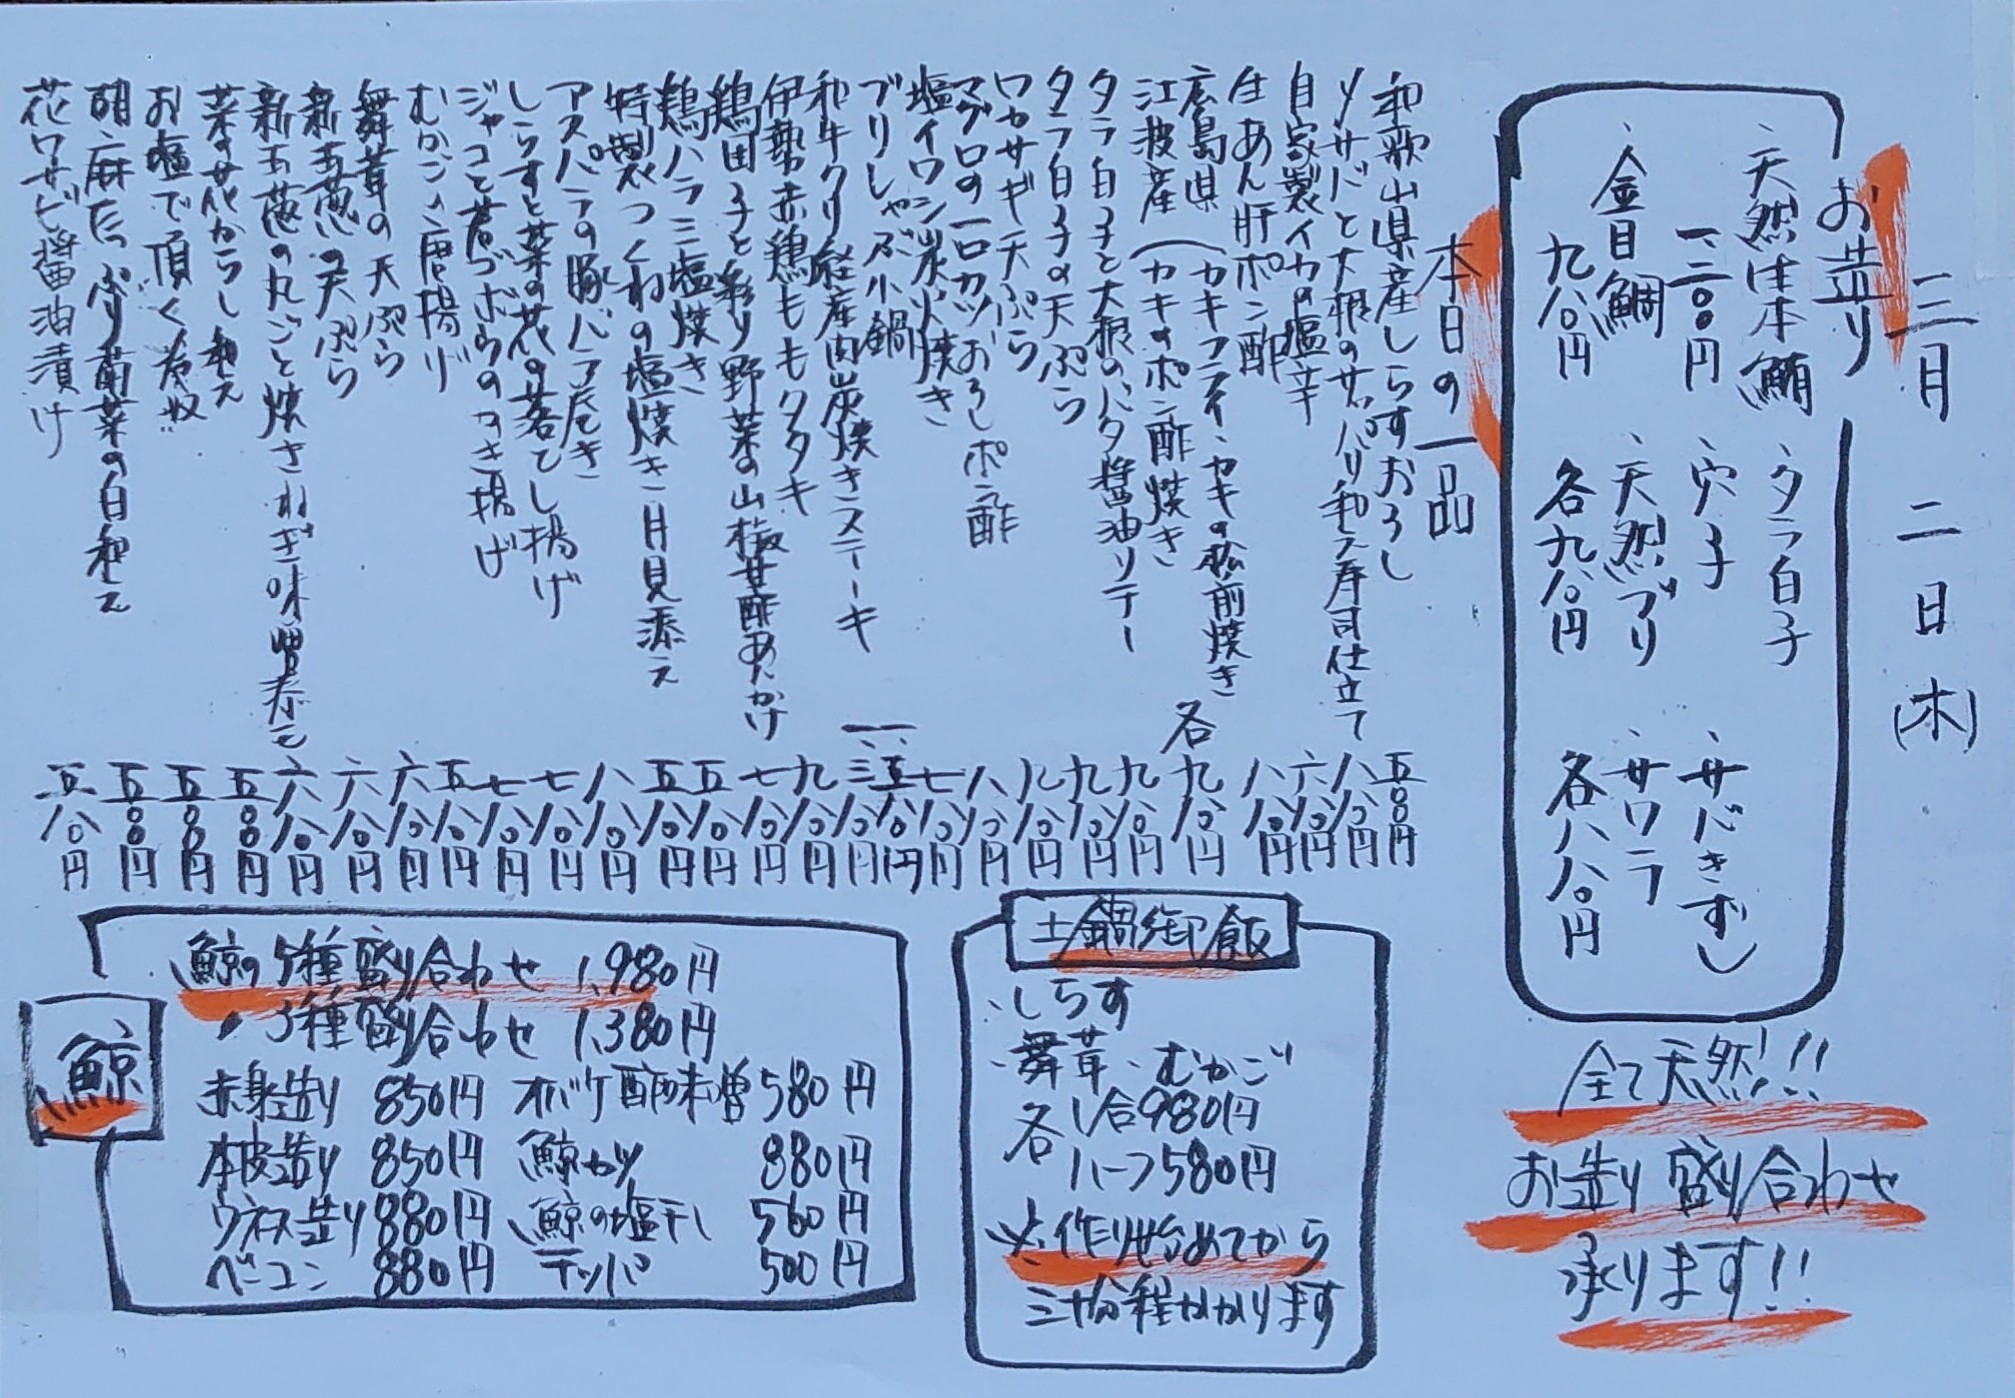 三月二日(木)
お造り
、天然生本鮪
一、二八〇円
、金目鯛
九八〇円
、タラ白子
、穴子
、天然ブリ
各九八〇円
、サバきずし
、サワラ
各八八〇円
全て天然!!
お造り盛り合わせ
承ります!!
本日の一品
和歌山県産しらすおろし 五〇〇円
〆サバと大根のサッパリ和え寿司仕立て 八八〇円
自家製イカの塩辛 六八〇円
生あん肝ポン酢 八八〇円
広島県江波産(カキフライ・カキの松前焼き
カキのポン酢焼き 各九八〇円
タラ白子と大根のバタ醤油ソテー 九八〇円
タラ白子の天ぷら 九八〇円
ワカサギ天ぷら 八八〇円
マグロの一口カツおろしポン酢
塩イワシ炭火焼き
ブリしゃぶ小鍋
和牛クリ経産肉炭焼きステーキ
伊勢赤鶏ももタタキ 九八〇円
鶏団子と彩り野菜の山椒甘酢あんかけ 七八〇円
鶏ハラミ塩焼き 五八〇円
特製つくねの塩焼き 月見添え 五八〇円
アスパラの豚バラ巻き 八八〇円
しらすと菜の花の落とし揚げ 七八〇円
ジャコと若ゴボウのかき揚げ 七八〇円
むかごの唐揚げ 五八〇円
舞茸の天ぷら 六八〇円
新玉葱の天ぷら 六八〇円
新玉葱の丸ごと焼き ねぎ味噌添え 六八〇円
菜の花からし和え 五〇〇円
お塩で頂く冷奴 五〇〇円
胡麻たっぷり菊菜の白和え 五〇〇円
花ワサビ醤油漬け 五八〇円
土鍋御飯
・しらす
・舞茸・むかご
各1合980円
ハーフ580円
※作り始めてから
三十分程かかります
鯨
鯨の5種盛り合わせ 1,980円
〃 3種盛り合わせ 1,380円
赤身造り 850円 オバケ酢味噌 580円
本皮造り 850円 鯨カツ 880円
ウネス造り 880円 鯨の塩干し 560円
ベーコン 880円 テッパ 500円